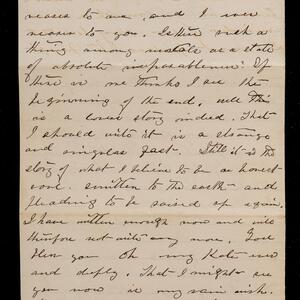 nearer to me, and I ever
nearer to you. Is there such a
thing among mortals as a state
of absolute inseparableness? If
there is me thinks I see the
beginning of the end, well this
is a love story indeed. That
I should write it is a strange
and singular fact. Still it is the
story of what I believe to be an honest
soul. smitten to the earth and
pleading to be raised up again.
I have written enough now and will
therefore not write any more. God
bless you Oh my Kate
and deeply. That I might see
you now is my vain wish.